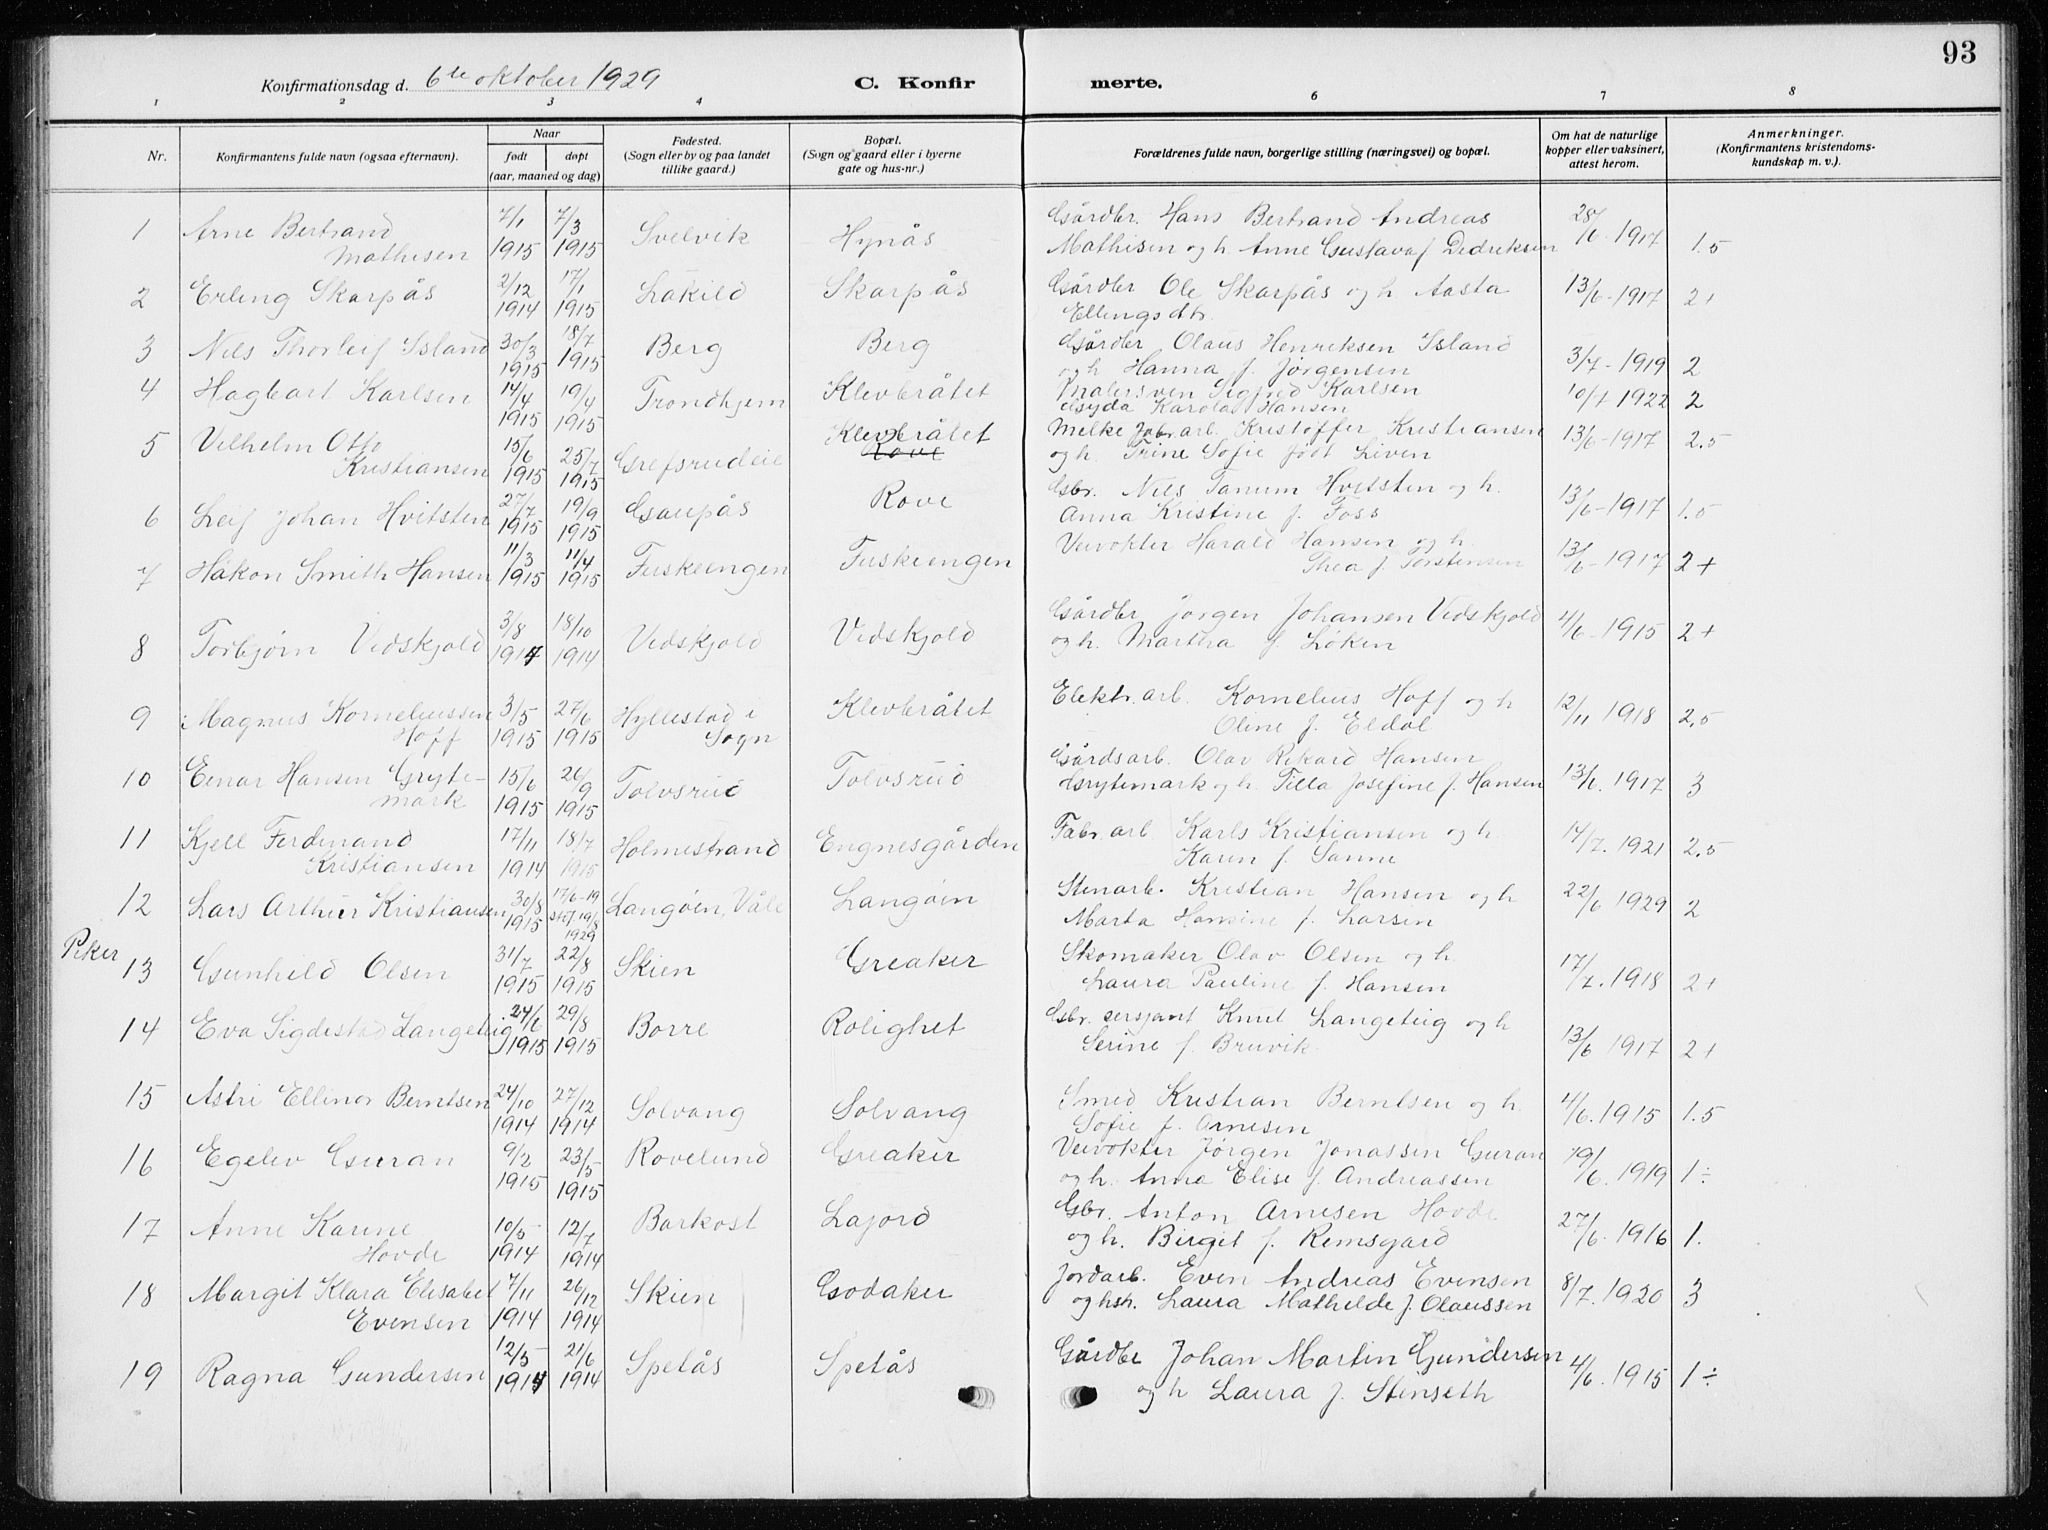 93
Konfirmationsdag d. 6te oktober 1929
C. Konfirmerte.
1 2 3 4 6 7 8
Nr.
Konfirmantens fulde navn (ogsaa efternavn).
Naar
født døpt
(aar, maaned og dag)
Fødested.
(Sogn eller by og paa landet
tillike gaard.)
Bopæl.
(Sogn og gaard eller i byerne
gate og hus-nr.)
Forældrenes fulde navn, borgerlige stilling (næringsvei) og bopæl.
Om hat de naturlige
kopper eller vaksinert,
attest herom.
Anmerkninger.
(Konfirmantens kristendoms-
kundskap m. v.).
1 Arne Bertrand Mathisen 7/1 1915 7/3 1915 Svelvik Hynås Gårdbr. Hans Bertrand Andreas
Mathisen og h Anne Gustava f Didriksen 28/6-1917 1.5
2 Erling Skarpås 2/12 1914 17/1 1915 Låkild Skarpås Gårdbr Ole Skarpås og h Aasta
Ellingsdtr. 13/6-1917 2+
3 Nils Thorleif Island 30/3 1915 18/7 1915 Berg Berg Gårdbr Olaus Henriksen Island
og h Hanna f. Jørgensen 3/7-1919 2
4 Hagbart Karlsen 14/4 1915 19/4 1915 Trondhjem Klevbråtet Malersven Sigfred Karlsen
Karola Hansen 1922 2
5 Vilhelm Otto Kristiansen 15/6 1915 25/7 1915 Grefsrudeie Klevbråtet Rove Melke fabr.arb. Kristoffer Kristiansen
og h. Trine Sofie født Liven 13/6-1917 2.5
6 Leif Johan Hvitsten 27/7 1915 19/9 1915 Gaupås Rove Gbr. Nils Tanum Hvitsten og h.
Anna Kristine f. Foss 13/6-1917 1.5
7 Håkon Smith Hansen 11/3 1915 11/4 1915 Fuskeengen Fuskeengen Veivokter Harald Hansen og h.
Thea f. Torstensen 13/6-1917 2+
8 Torbjørn Vidskjold 3/8 1914 18/10 1914 Vidskjold Vidskjold Gårdbr Jørgen Johansen Vidskjold
og h. Martha f. Løken 4/6-1915 2+
9 Magnus Korneliussen Hoff 3/5 1915 27/6 1915 Hyllestad i Sogn Klevbråtet Elektr. arb. Kornelius Hoff og h
Oline f. Eldal 12/11 1918 2.5
10 Einar Hansen Grytemark 15/6 1915 26/9 1915 Tolvsrud Tolvsrud Gårdsarb. Olav Rikard Hansen
Grytemark og h. Tilla Josefine f. Hansen 13/6. 1917 3
11 Kjell Ferdinand Kristiansen 17/11 1914 18/7 1915 Holmestrand Engnesgården Fabr. arb. Karls Kristiansen og h.
Karen f. Sanne 14/7. 1921 2.5
12 Lars Arthur Kristiansen 30/8 1915 17/6-19 stf. 19/8 1929 Langøen, Våle Langøin Stenarb. Kristian Hansen og h
Marta Hansine f. Larsen 22/6 1929 2
Piker
13 Gunhild Olsen 31/7 1915 22/8 1915 Skien Greaker Skomaker Olav Olsen og h.
Laura Pauline f. Hansen 17/7. 1918 2+
14 Eva Sigdestad Langeteig 24/6 1915 29/8 1915 Borre Rolighet Gbr. sersjant Knut Langeteig og h
Serine f. Bruvik 13/6 1917 2+
15 Astri Ellinor Berntsen 24/10 1914 27/12 1914 Solvang Solvang Smed Kristian Berntsen og h.
Sofie f. Arnesen 4/6. 1915 1.5
16 Egelev Guran 9/2 1915 23/5 1915 Rovelund Greaker Veivokter Jørgen Jonassen Guran
og h. Anna Elise f. Andreassen 19/6. 1919 1÷
17 Anne Karine Hovde 10/5 1914 12/7 1914 Barkost Lajord Gbr. Anton Arnesen Hovde
og h. Birgit f. Remsgard 27/6. 1916 1.
18 Margit Klara Elisabet Evensen 7/11 1914 26/12 1914 Skien Godaker Jordarb. Even Andreas Evensen
og hsh. Laura Mathilde f. Olaussen 8/7. 1920 3
19 Ragna Gundersen 12/5 1914 21/6 1914 Spetås Spetås Gårdbr Johan Martin Gundersen
og h Laura f. Stenseth 4/6. 1915 1÷